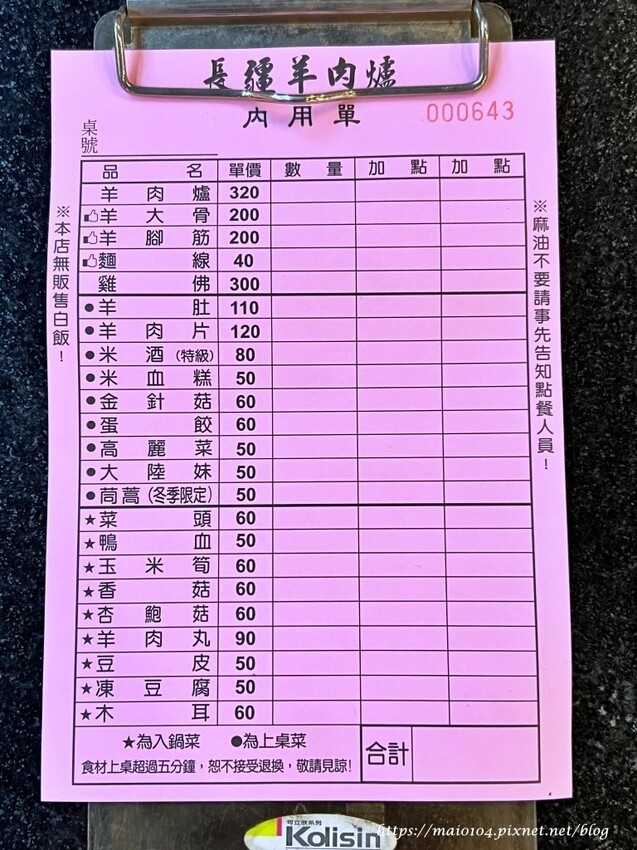 長疆羊肉爐
內用單
000643
桌號
品名 單價 數量 加點 加點
羊肉爐 320
羊大骨 200
羊腳筋 200
麵線 40
雞佛 300
●羊肚 110
●羊肉片 120
●米酒(特級) 80
●米血糕 50
●金針菇 60
●蛋餃 60
●高麗菜 50
●大陸妹 50
●茼蒿(冬季限定) 50
★菜頭 60
★鴨血 50
★玉米筍 60
★香菇 60
★杏鮑菇 60
★羊肉丸 90
★豆皮 50
★凍豆腐 50
★木耳 60
★為入鍋菜 ●為上桌菜
食材上桌超過五分鐘，恕不接受退換，敬請見諒!
合計
※本店無販售白飯！
※麻油不要請事先告知點餐人員！
可立欣系列
Kolisin
https://maio104.pixnet.net/blog